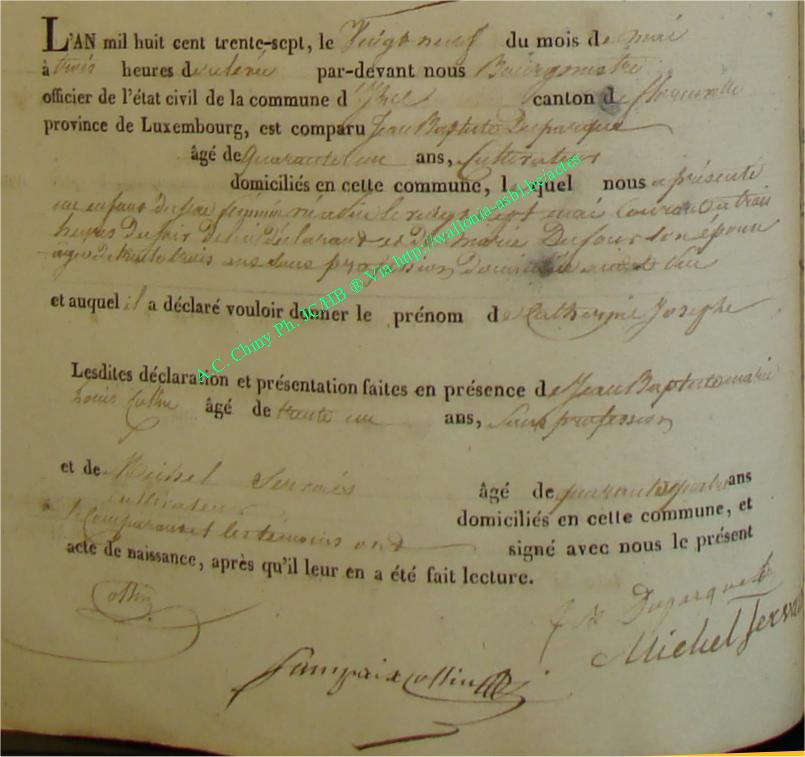 L'AN mil huit cent trente-sept, le Vingt neuf du mois de mai
à trois heures de relevée par-devant nous Bourgmestre
officier de l'état civil de la commune d' canton de Florenville
province de Luxembourg, est comparu Jean Baptiste Duparque
âgé de quarante un ans, Cultivateur
domiciliés en cette commune, lequel nous a présenté
un enfant du sexe féminin né à le vingt sept mai courant a trois
heures du soir de lui déclarant et de marie Dufour son épouse
âgée de trente trois ans sans profession Domiciliée
et auquel il a déclaré vouloir donner le prénom de Catherine Josephe
Lesdites déclaration et présentation faites en présence de Jean Baptiste marie
Louis Collin âgé de trente un ans, sans profession
et de Michel Servais âgé de quarante quatre ans
cultivateur domiciliés en cette commune, et
le Comparant et les témoins ont signé avec nous le présent
acte de naissance, après qu'il leur en a été fait lecture.
Collin
Duparque
Michel Servais
Lampaix Collin
A.C. Chiny Ph. JCHB ® Via http://wallonia-asbl.be/actes